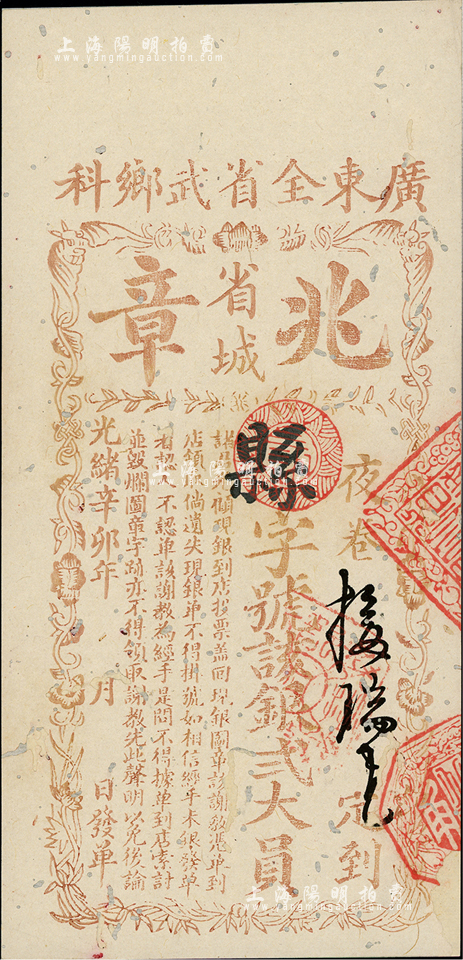 上海陽明拍賣
www.yangmingauction.com
廣東全省武鄉科
兆
省城
章
夜卷
定到
縣字號謝銀弍大員
現銀到店投票蓋回現銀圖章該謝教憑單到
店領
倘遺失現銀单不得掛號如相信經手未銀發单
者認
不認单該謝教為經手是問不得據单到店索討
並毀爛圖章字跡亦不得領取謝教先此聲明以免後論
光緒辛卯年
月
日發单
上海陽明拍賣
www.yangmingauction.com